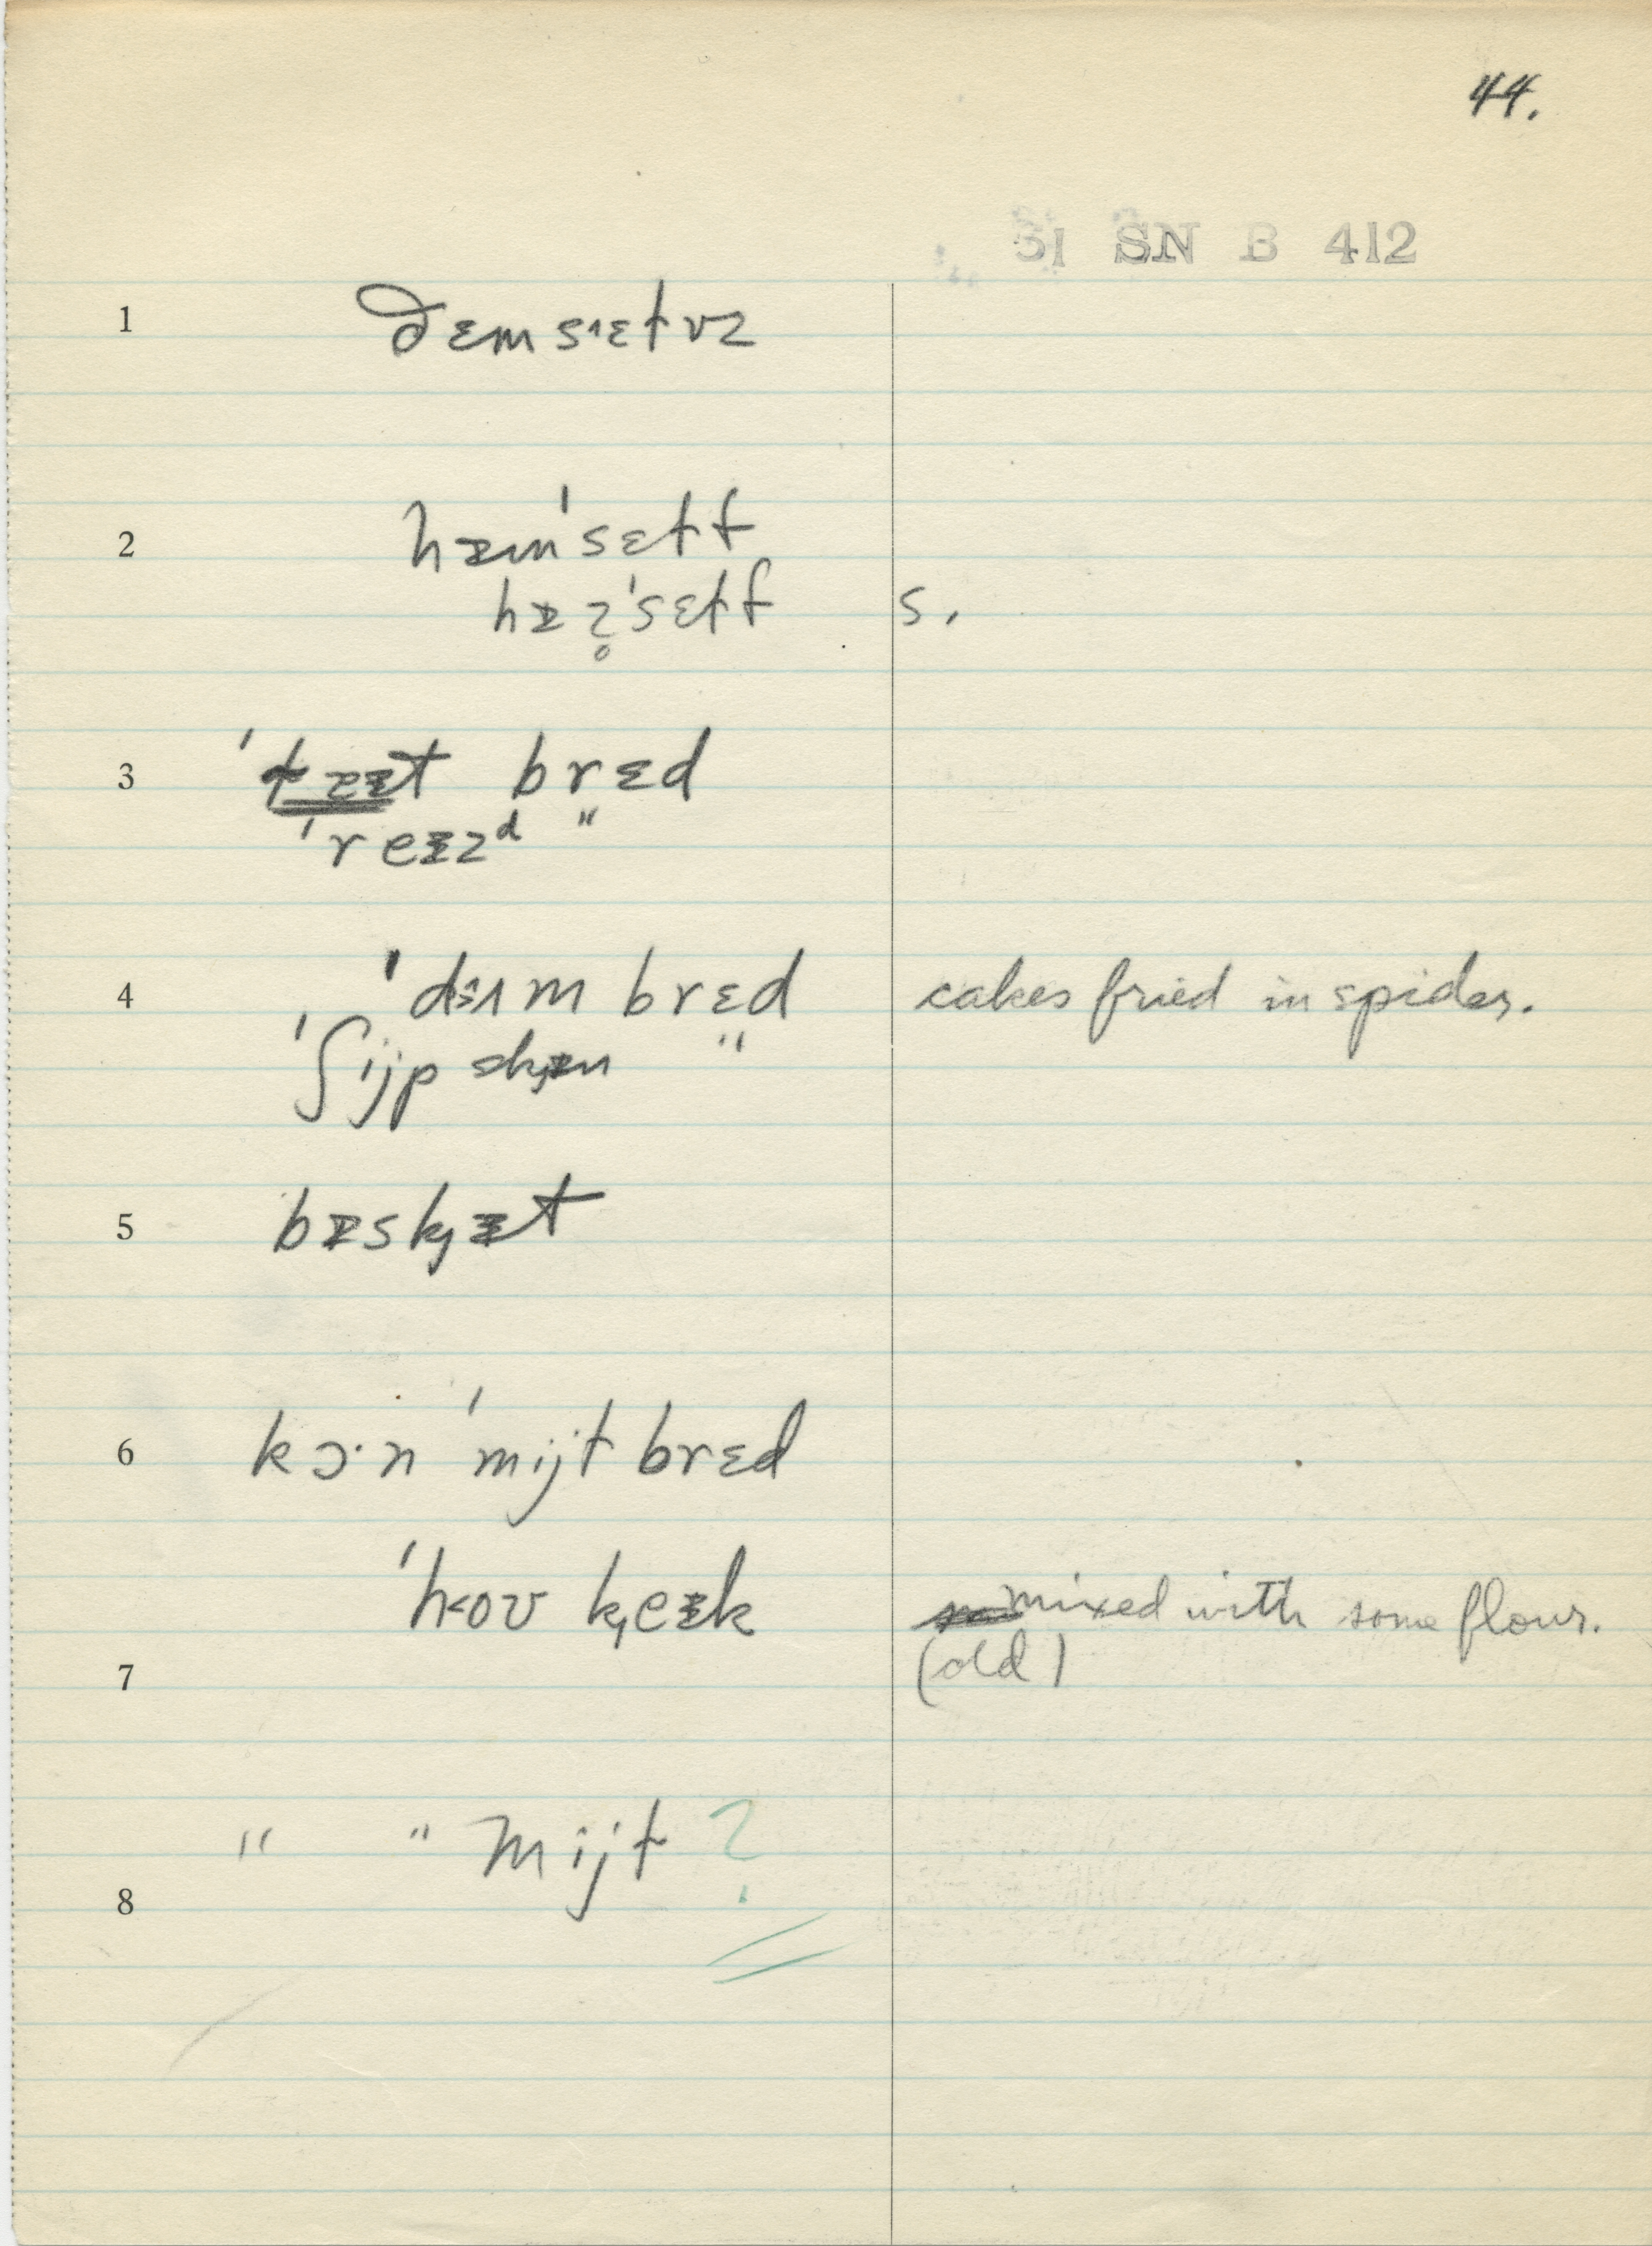 44.
51 SN B 412
1 ðɛmsɪɛɫvz
2 hɪm'sɛɫf
hɪz̥'sɛɫf s.
3 'ɫaɪt brɛd
'reɪzᵈ "
4 brɛd cakes fried in spider.
'ʃijp skɪn "
5 bɪskɪt
6 kɔ·n 'mijɫ brɛd
'hoʊ keɪk mixed with some flour.
7 (old)
" " mijɫ ?
8